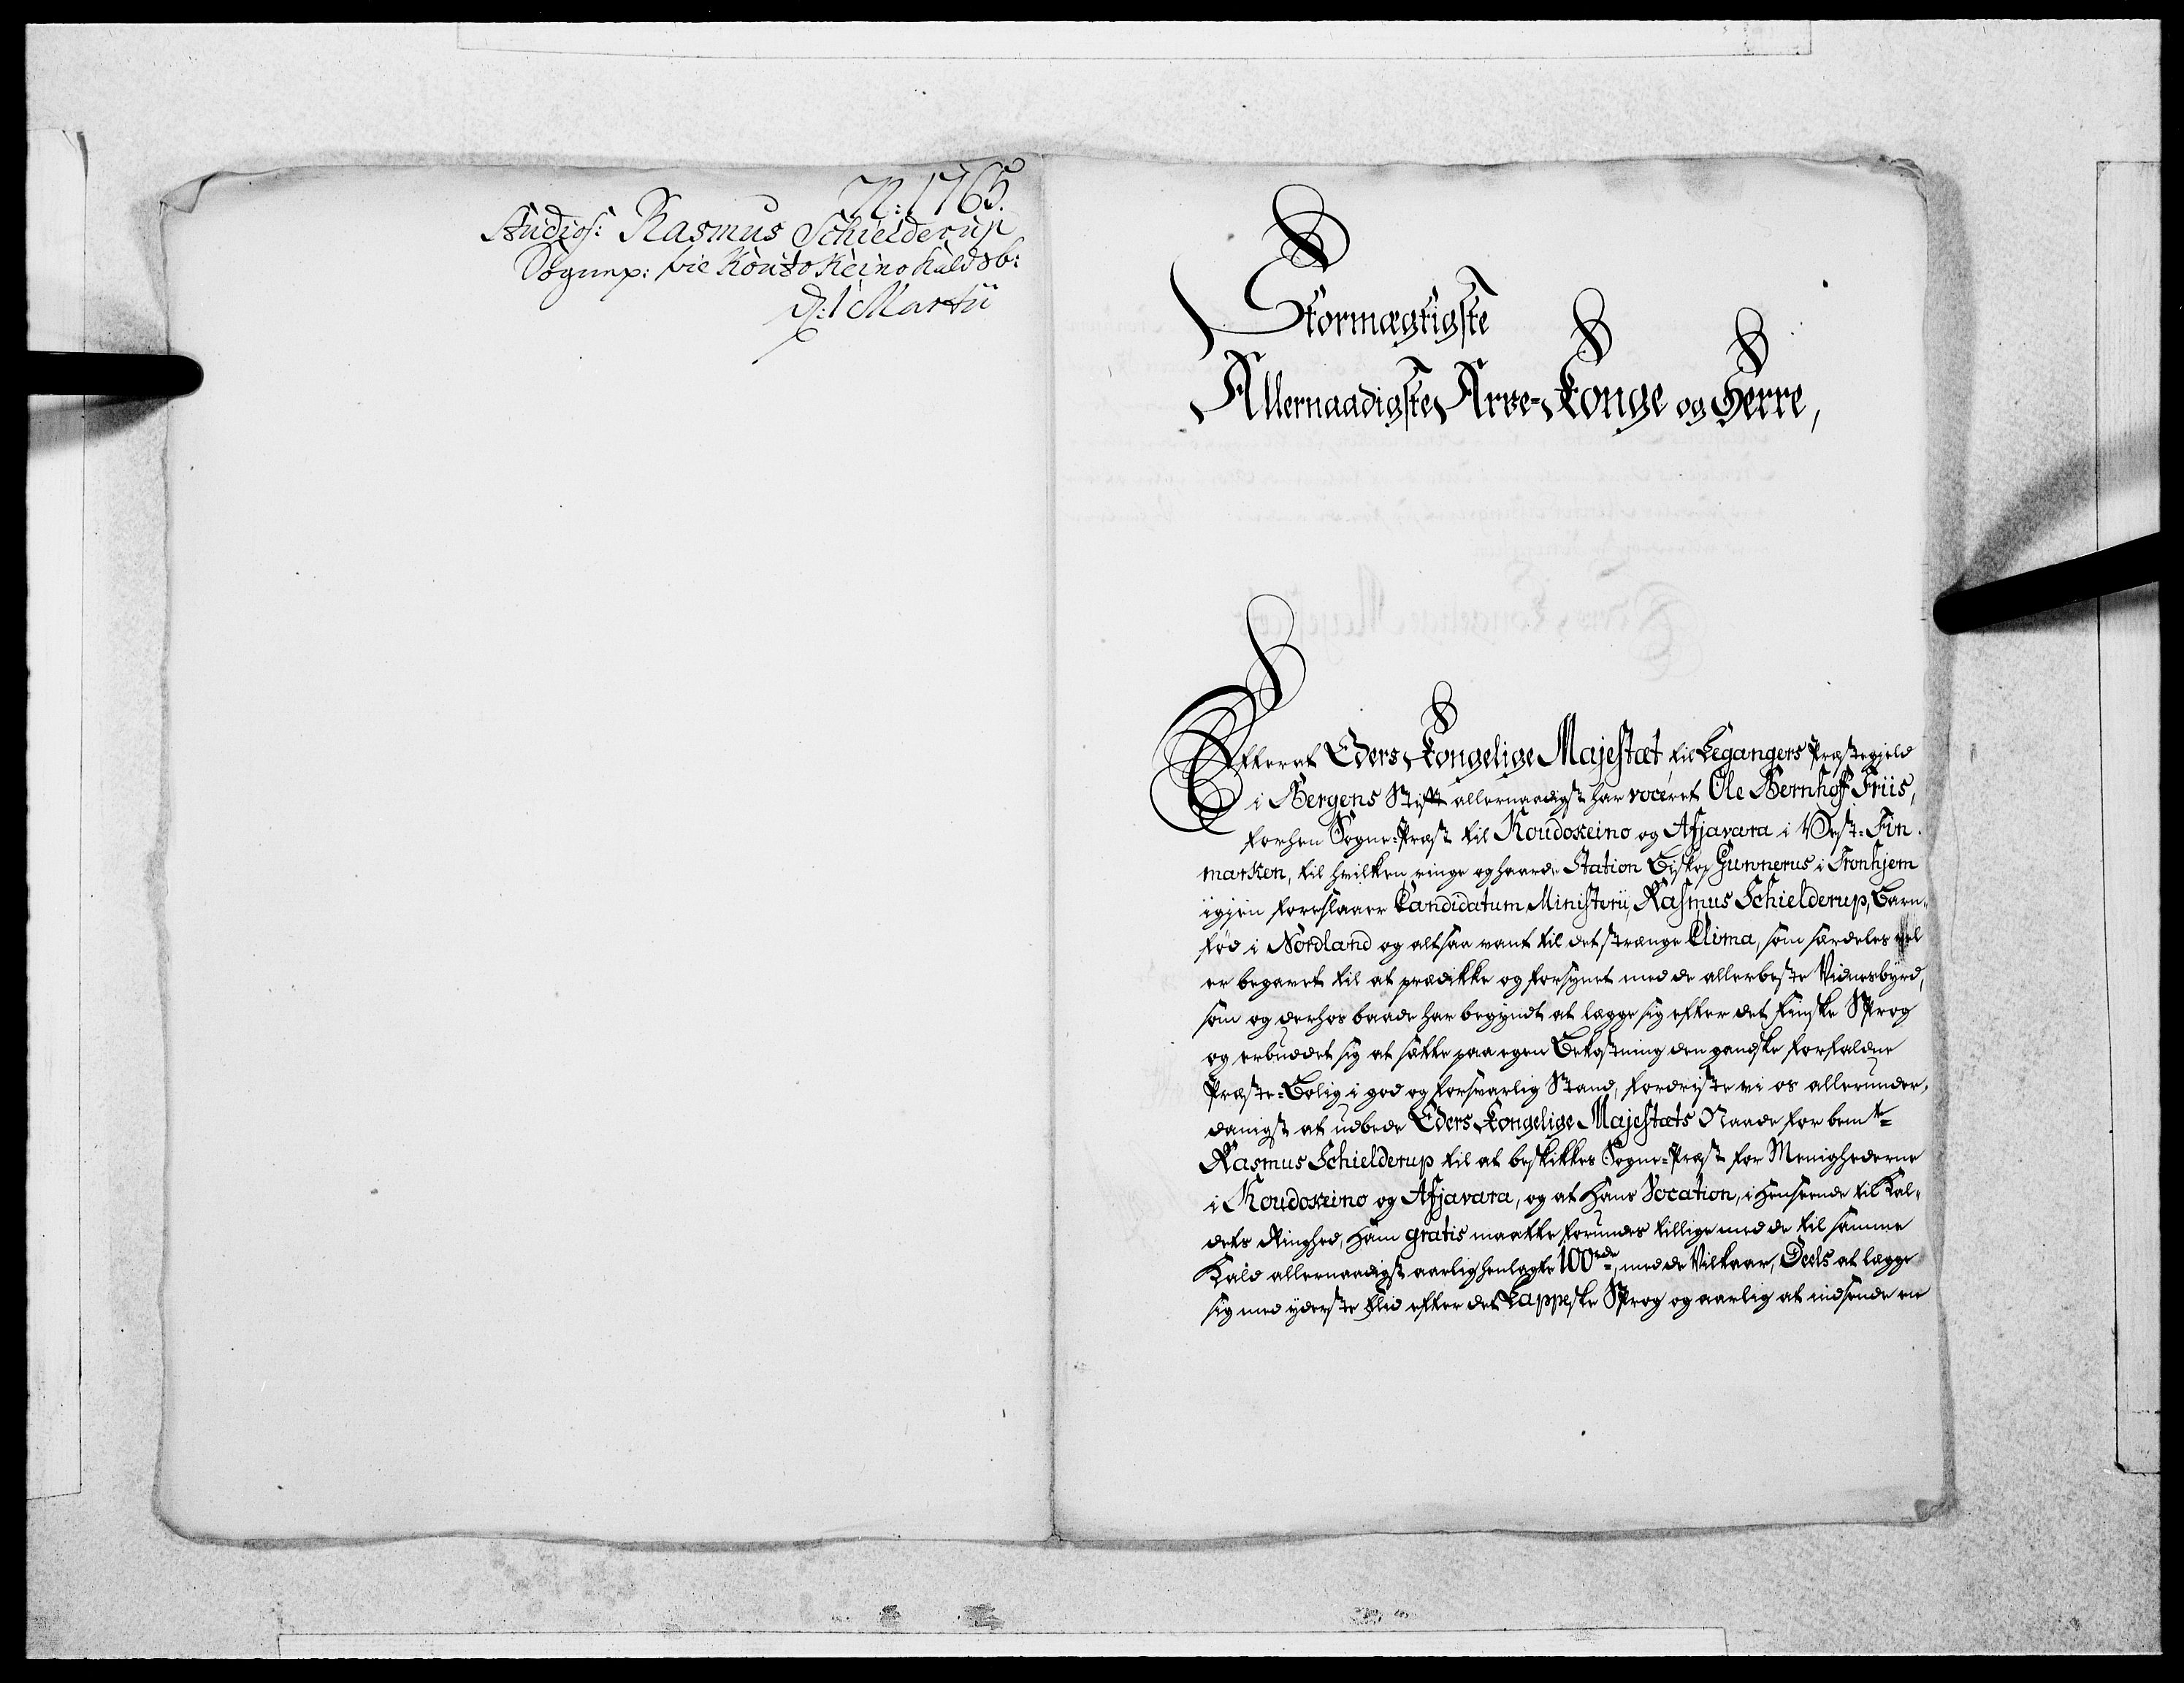 N: 1765.
Studios: Rasmus Schielderup
Sognep: til Koutokeino Kaldsb:
d: 1 Martii
Stormægtigste
Allernaadigste Arve-Konge og Herre,
Efterat Eders Kongelige Majestæt til Legangers Præstegield
i Bergens Stift allernaadigst har voceret Ole Bernhoff Friis,
forhen Sogne-Præst til Koudokeino og Afjavara i Vest-Fin-
marken, til hvilken ringe og haarde Station Biskop Gunnerus i Tronhjem
igjen foreslaaer Candidatum Ministerii, Rasmus Schielderup, Barn-
fød i Nordland og altsaa vant til det strænge Clima, som særdeles vel
er begavet til at prædikke og forsynet med de allerbeste Vidnesbyrd,
som og derhos baade har begyndt at lægge sig efter det finske Sprog
og erbuddet sig at sætte paa egen Bekostning den gandske forfaldne
Præste-Bolig i god og forsvarlig Stand, fordriste vi os allerunder-
danigst at udbede Eders Kongelige Majestæts Naade for bemte
Rasmus Schielderup til at beskikkes Sogne-Præst for Menighederne
i Koudokeino og Afjavara, og at Hans Vocation, i Henseende til Kal-
dets Ringhed, Ham gratis maatte forundes tillige med de til samme
Kald allernaadigst aarlig henlagte 100 rdr, med de Vilkaar, Deels at lægge
sig med yderste Flid efter det Lappeske Sprog og aarlig at indsende en